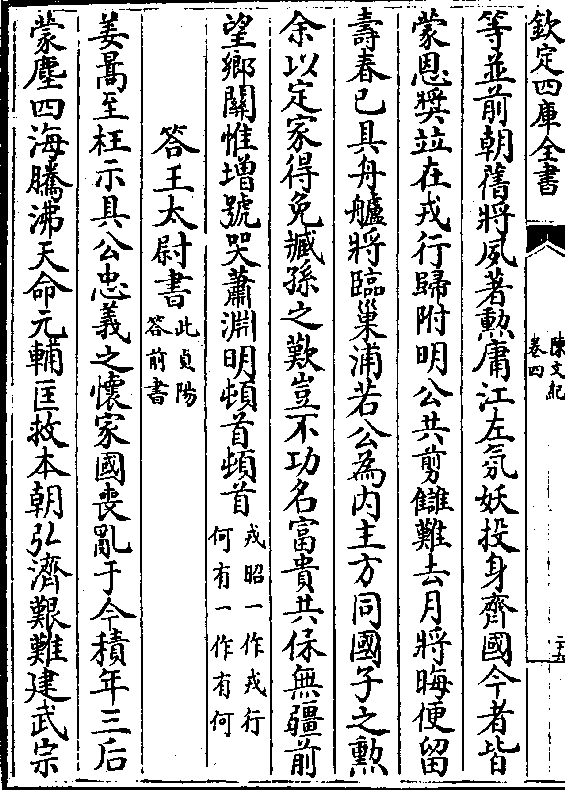 欽定四庫全書
陳文紀
卷四
等並前朝舊將夙著勲庸江左氛妖投身齊國今者皆
蒙恩奨竝在戎行歸附明公共剪讎難去月將晦便留
壽春已具舟艫將臨巢浦若公為内主方同國子之勲
余以定家得免臧孫之歎豈不功名富貴共保無疆前
望鄉關惟増號哭蕭淵明頓首頓首
戎昭一作戎行
何有一作有何
答王太尉書
此貞陽
答前書
姜暠至枉示具公忠義之懷家國喪亂于今積年三后
蒙塵四海騰沸天命元輔匡救本朝弘濟艱難建武宗